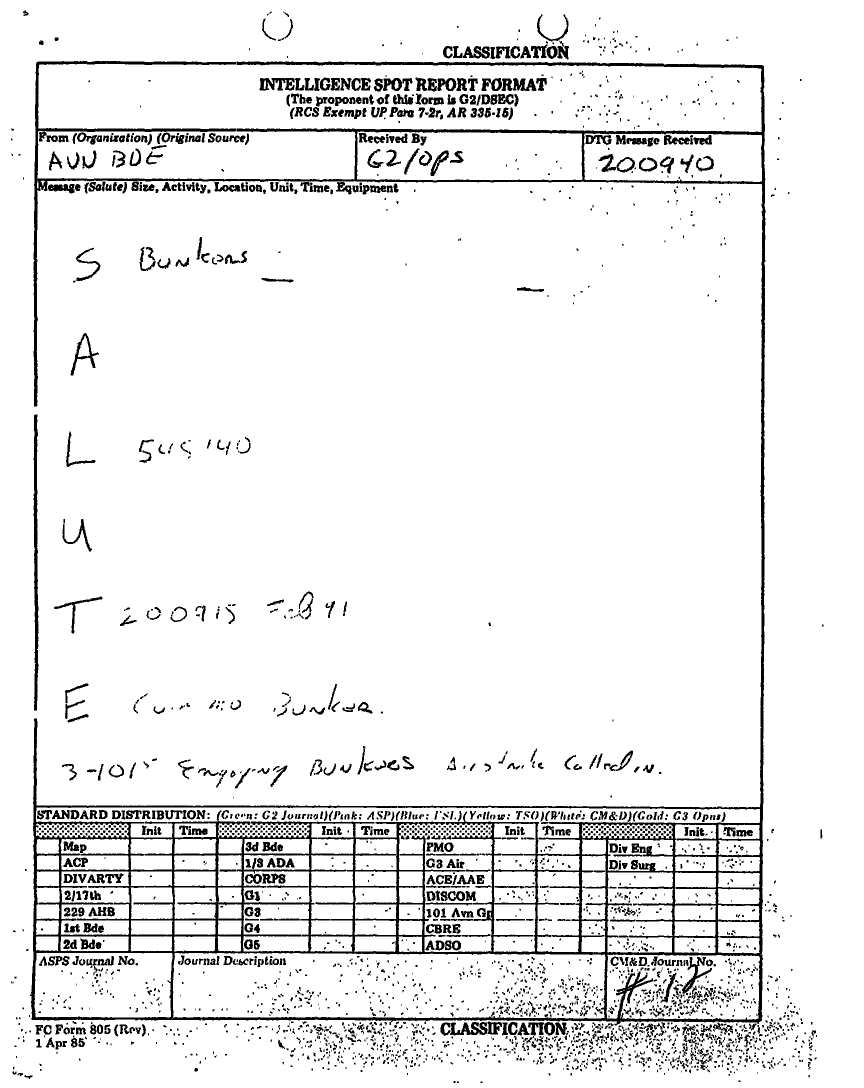 CLASSIFICATION
INTELLIGENCE SPOT REPORT FORMAT
(The proponent of this form is G2/DSEC)
(RCS Exempt UP Para 7-2r, AR 335-15)
From (Organization) (Original Source) Received By DTG Message Received
AVN BDE G2/Ops 200940
Message (Salute) Size, Activity, Location, Unit, Time, Equipment
S Bunkers
A
L 545140
U
T 200915 Feb 91
E Commo Bunker.
3-101st Engaging Bunkers Airstrike Called in.
STANDARD DISTRIBUTION: (Green: G2 Journal)(Pink: ASP)(Blue: TSO)(Yellow: TSO)(White: CM&D)(Gold: G3 Opns)
Init Time Init Time Init Time Init Time
Map 3d Bde PMO Div Eng
ACP 1/3 ADA G3 Air Div Surg
DIVARTY CORPS ACE/AAE
2/17th G1 DISCOM
229 AHB G3 101 Avn Gp
1st Bde G4 CBRE
2d Bde G5 ADSO
ASPS Journal No. Journal Description CM&D Journal No.
# 12
FC Form 805 (Rev) CLASSIFICATION
1 Apr 85